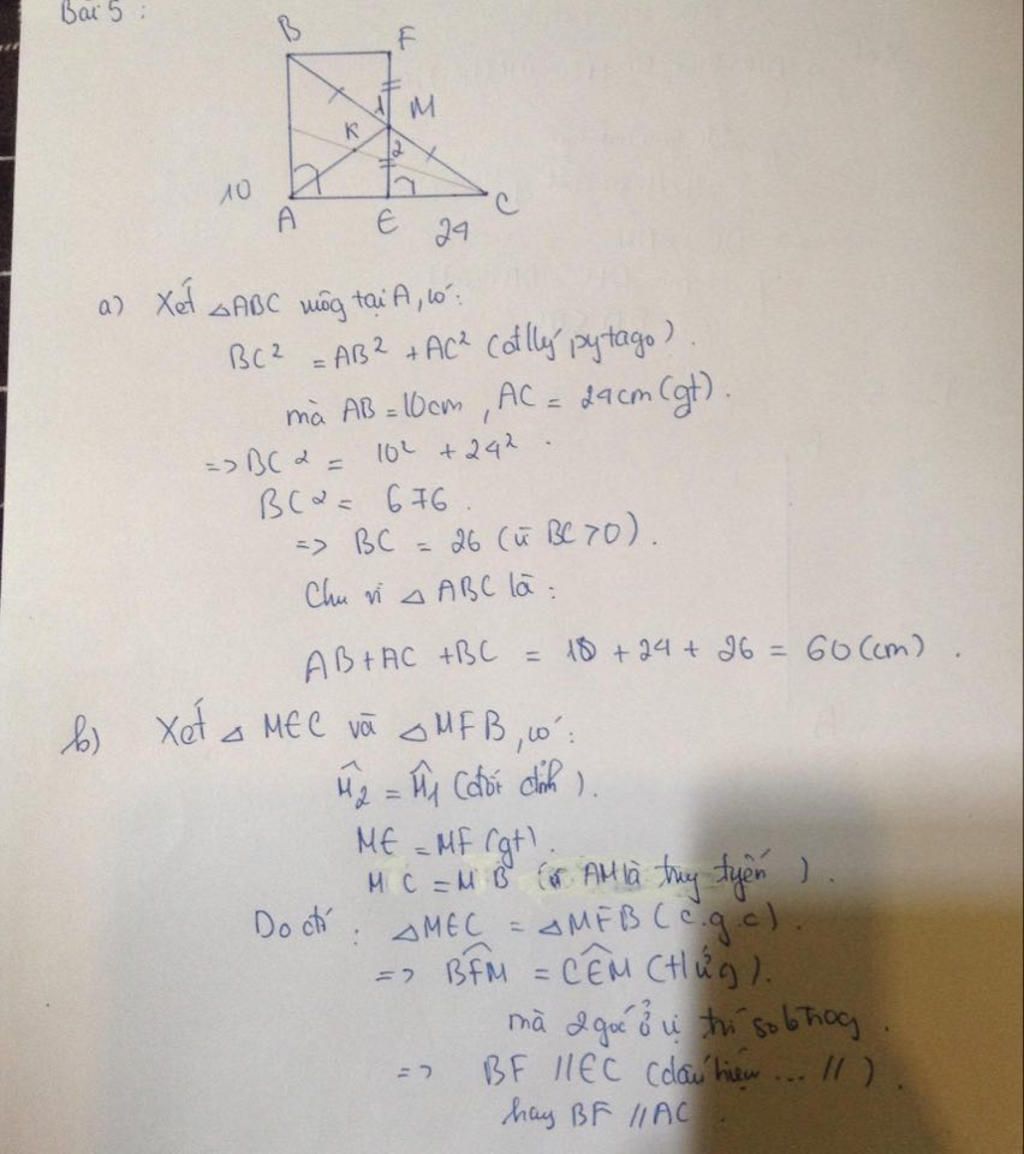 Bài 5 :
B
F
1
M
K
2
10
A
E
C
24
a) Xét △ABC vuông tại A, có:
BC² = AB² + AC² (đ/lý pytago).
mà AB = 10cm, AC = 24cm (gt).
=> BC² = 10² + 24².
BC² = 676.
=> BC = 26 (vì BC > 0).
Chu vi △ ABC là :
AB + AC + BC = 10 + 24 + 26 = 60 (cm).
b) Xét △ MEC và △ MFB, có :
M̂2 = M̂1 (đối đỉnh).
ME = MF (gt).
MC = MB (vì AM là tuyến).
Do đó : △MEC = △MFB (c.g.c).
=> BF̂M = CÊM (t/ứg).
mà 2 góc ở vị trí so le trog.
=> BF // EC (dấu hiệu ... //).
hay BF // AC.